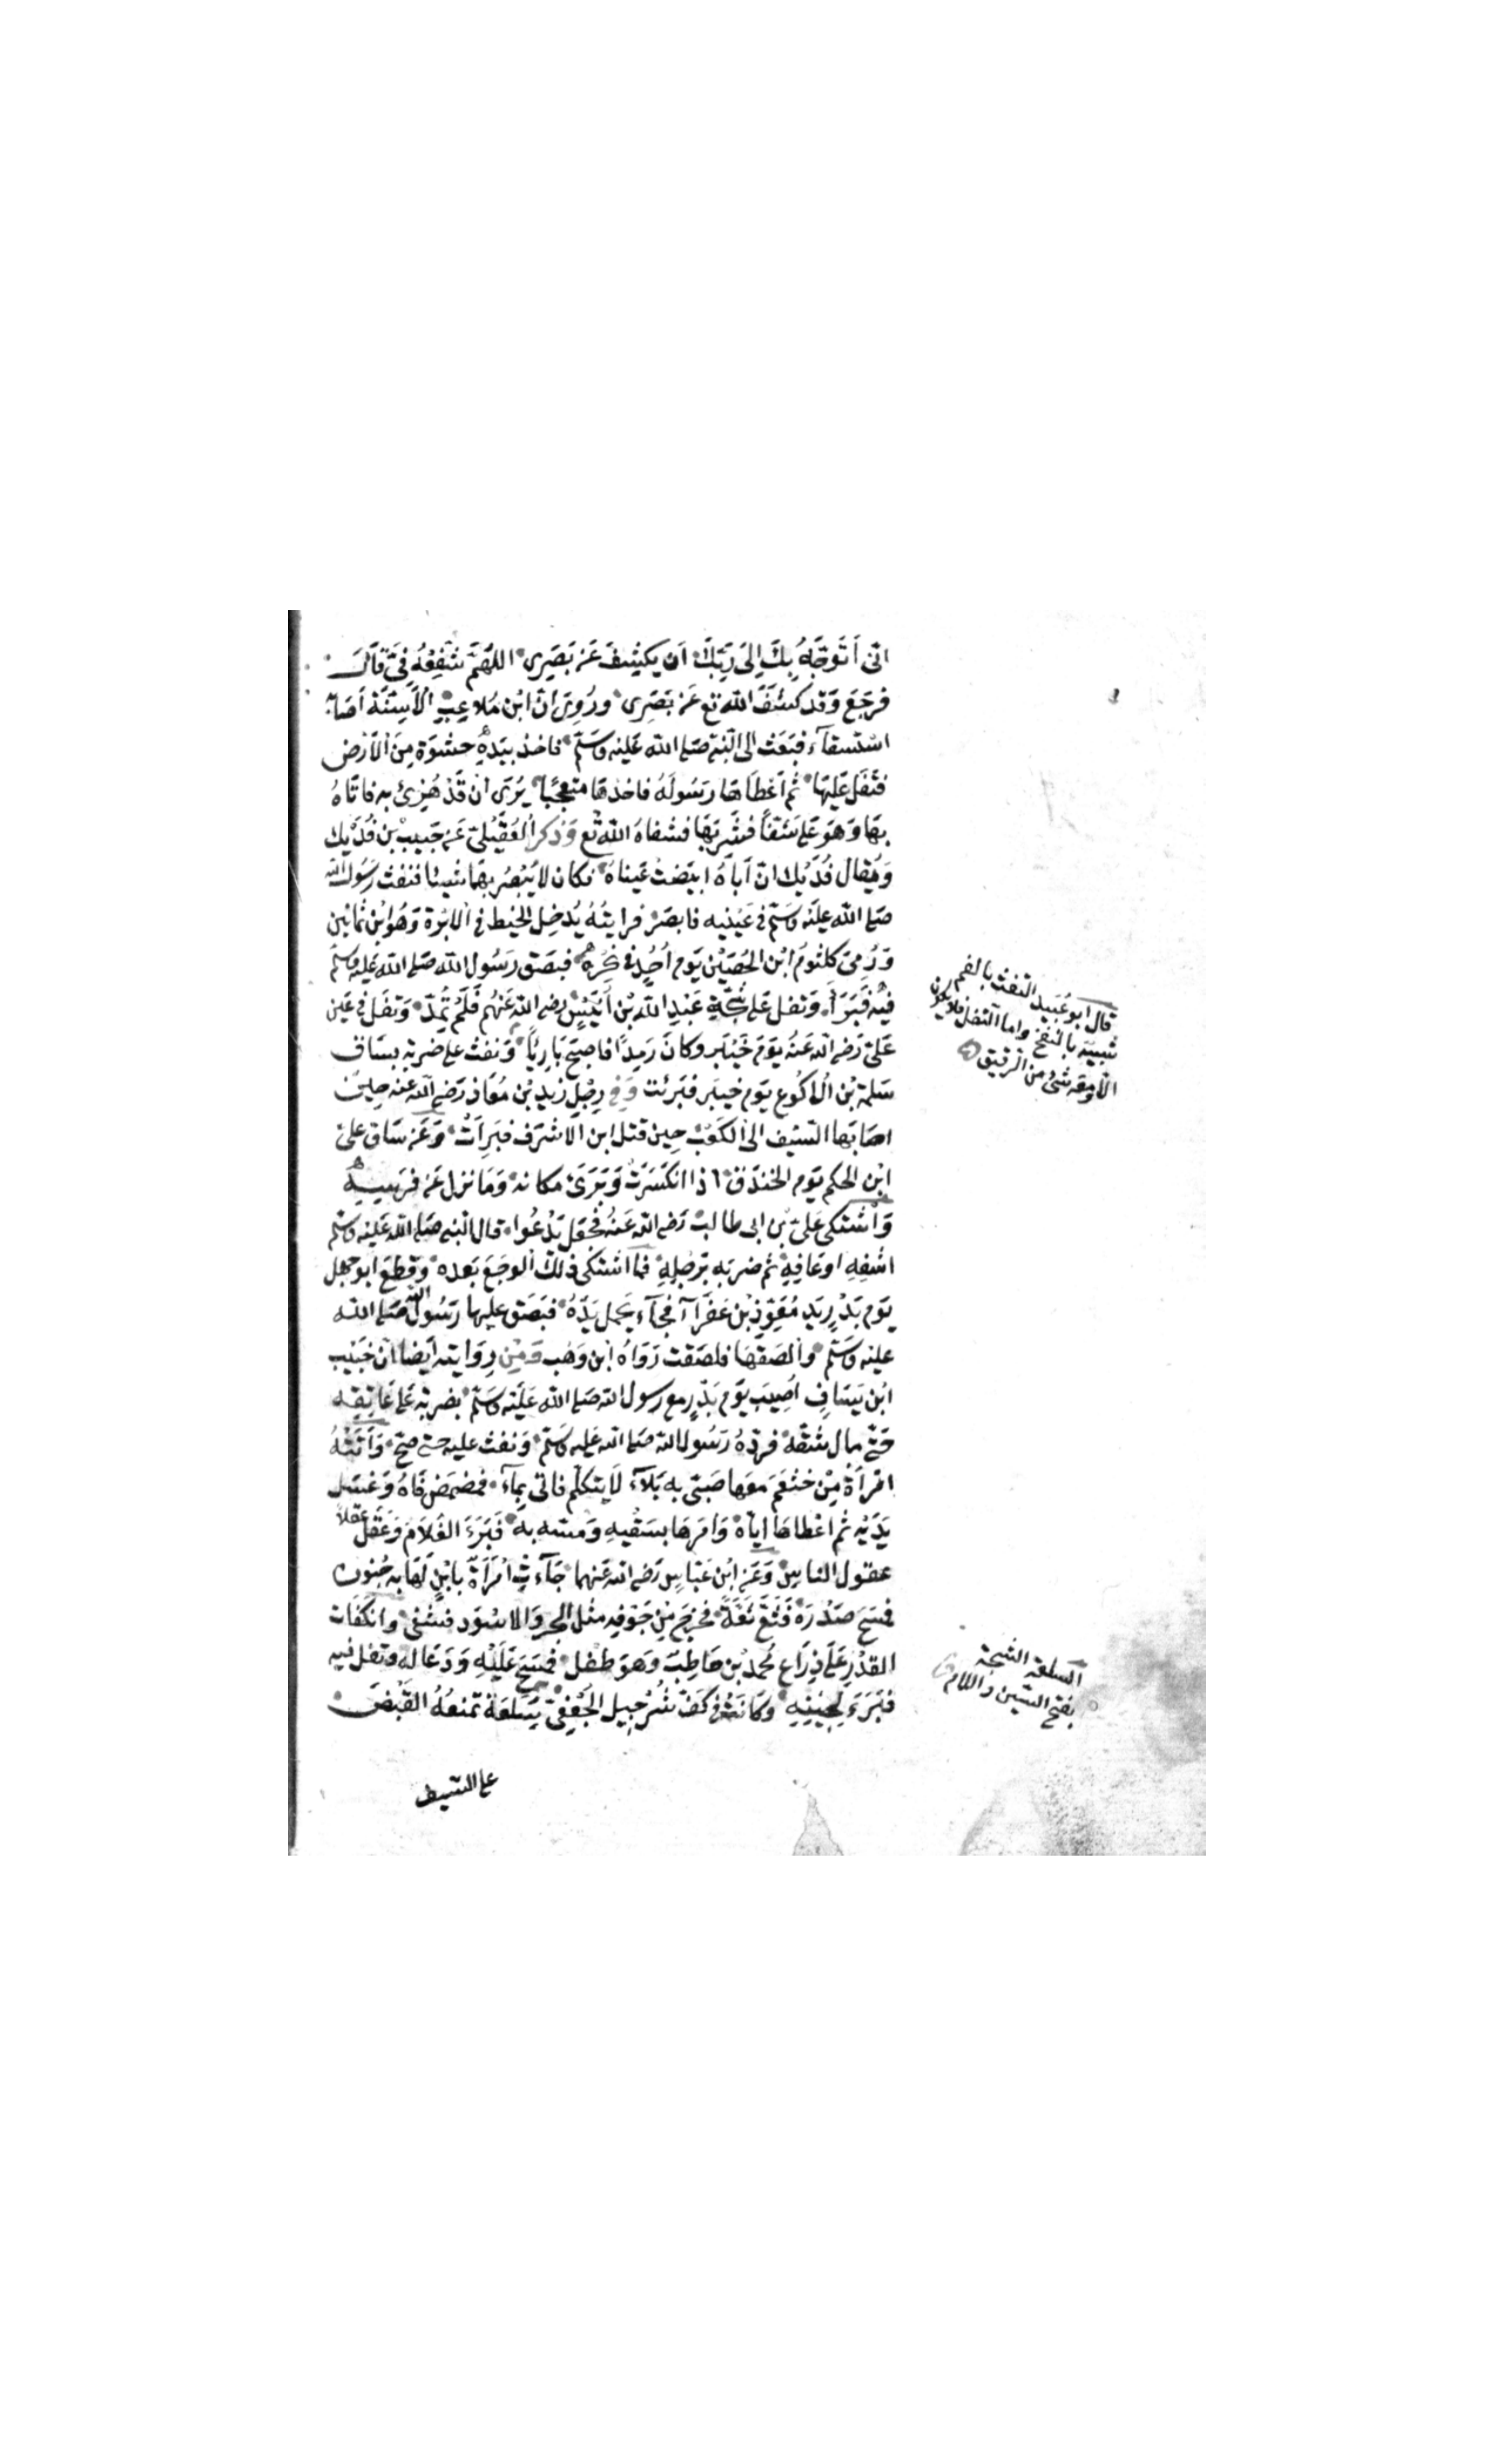 انى أَتَوَجَّهُ بِكَ اِلَى رَبِّكَ اَن يكشِفَ عَنْ بَصَرِى اللّهُمَّ شَفِّعْهُ فِىَّ قَالَ
فرَجَعَ وَقد كشَفَ الله تع عَنْ بَصَرِى ورُوِىَ انّ ابْن مُلاعِبِ الْاَسِنَّة اَصَابَهُ
اسْتسقآء فبَعَث الى النّبى صَلى الله عَليْه وَسَلّم فاخذ بيَدِهِ حثْوَة مِنَ الْاَرْض
فتَفَل عَلَيْهَا ثم اَعْطَاهَا رَسُولَهُ فاخذهَا متعجّبا يُرَى اَنْ قَدْ هُزِئ به فاتاهُ
بهَا وَهوَ عَلى شَفًا فشَرِبَهَا فشفاهُ الله تع وَذكر العُقَيْلىّ عَنْ حَبيب بْن فُدَيْك
وَيُقال فُدَيْك انّ اَباهُ ابيَضّتْ عَيناهُ فكان لَا يُبْصِرُ بهمَا شيئا فنَفث رَسُول الله
صَلى الله عَليْه وَسَلّم فى عَيْنيه فابصَرَ فرايتُهُ يُدخِل الخيْط فى الابْرَة وَهُوَ ابْن ثمانين
وَرُمِىَ كلثومُ ابْن الحُصَيْن يَوم اُحُدٍ فى نحرِهِ فبصَق رَسُول الله صَلى الله عَليْه وَسَلّم
فيْهِ فَبَرَأَ وَتفل عَلى شَجَّةِ عَبْدِ الله بْن اُنَيْسٍ رضى الله عَنْهم فَلَمْ تُمِدّ وَتفَل فى عَيْن
عَلىّ رَضى الله عَنْهُ يَوْمَ خَيْبَر وكانَ رَمِدًا فاصبَح بَارِيًا وَنفث على ضربَة بسَاق
سَلمة بْن الْاكوَع يَوم خيبَر فبَرِئت وَفى رِجْلِ زيدِ بْن مُعَاذ رَضى الله عنه حِين
اصَابَها السّيْف الى الكَعْبِ حِين قتل ابن الْاشرَف فبَرِأَتْ وَعَن سَاق علىّ
ابْن الحكم يَوم الخندَق اذا انكَسَرَتْ وَبَرَئَ مكانه وَمَا نزل عَن فَرَسِهِ
وَاشتكى عَلىّ بْن ابى طالب رَضى الله عَنْهُ فجعَل يَدْعُوا قال النّبى صَلى الله عَليْه وَسَلّم
اشْفِهِ اوعَافِهِ ثم ضرَبَه برِجْلِهِ فما اشتكى ذلك الوَجَعَ بَعْده وَقطعَ ابو جَهْل
يَوم بَدْرٍ يَد مُعَوِّذِ بْن عَفْرَآءَ فجآء يحمل يَدَهُ فبَصَق عليها رَسُول الله صَلى الله
عليْه وَسَلّم وَالصَقهَا فلصَقت رَوَاهُ ابْن وَهْب وَمِنْ رِوَايته اَيضا اَنّ خبَيْب
ابْن يَسَافٍ اُصِيبَ يَوم بَدْرٍ مع رسول الله صَلى الله عَليْه وَسَلّم بضربَة عَلى عَاتِقِه
حَتّى مال شقّه فرَدّهُ رَسُول الله صَلى الله عَليه وَسَلّم وَنفث عليه حتى صَحّ وَاَتَتْهُ
امْرَأَةٌ مِنْ خثعَمَ معَها صَبىّ به بَلآء لَا يَتكلّم فاتى بمآء فمضمَض فَاهُ وَغسَل
يَدَيْه ثم اعْطاهَا ايّاه وَامَرهَا بسَقْيِهِ وَمسّه به فَبَرَءَ الغُلامُ وَعَقلَ عَقلًا
عقول الناس وَعَن ابْن عَبّاسٍ رَضى الله عَنهما جَآءتِ امْرَأَةٌ بابْنٍ لَهَا به جُنُون
فمسَحَ صَدْرَهُ فَثَعّ ثَعَّةً فخَرَج مِن جَوْفِه مثل الجرو الاسْوَد فشفى وانكفَات
القدْر عَلَى ذِرَاع محمد بْن حَاطِب وَهوَ طفْل فمسَح عَلَيْه وَدَعَا له وتفل فيه
فبَرَءَ لِحِيْنِه وكانَتْ فى كَفّ شُرَحْبِيل الجُعْفِىّ سَلعَة تمنعُهُ القَبْضَ
على السّيف
قال ابو عُبَيد النفث بالفم
شبيه بالنفخ واما التفل فلا يكون
الا ومعه شئ من الريق
السلعة الشجة
بفتح السّين واللام